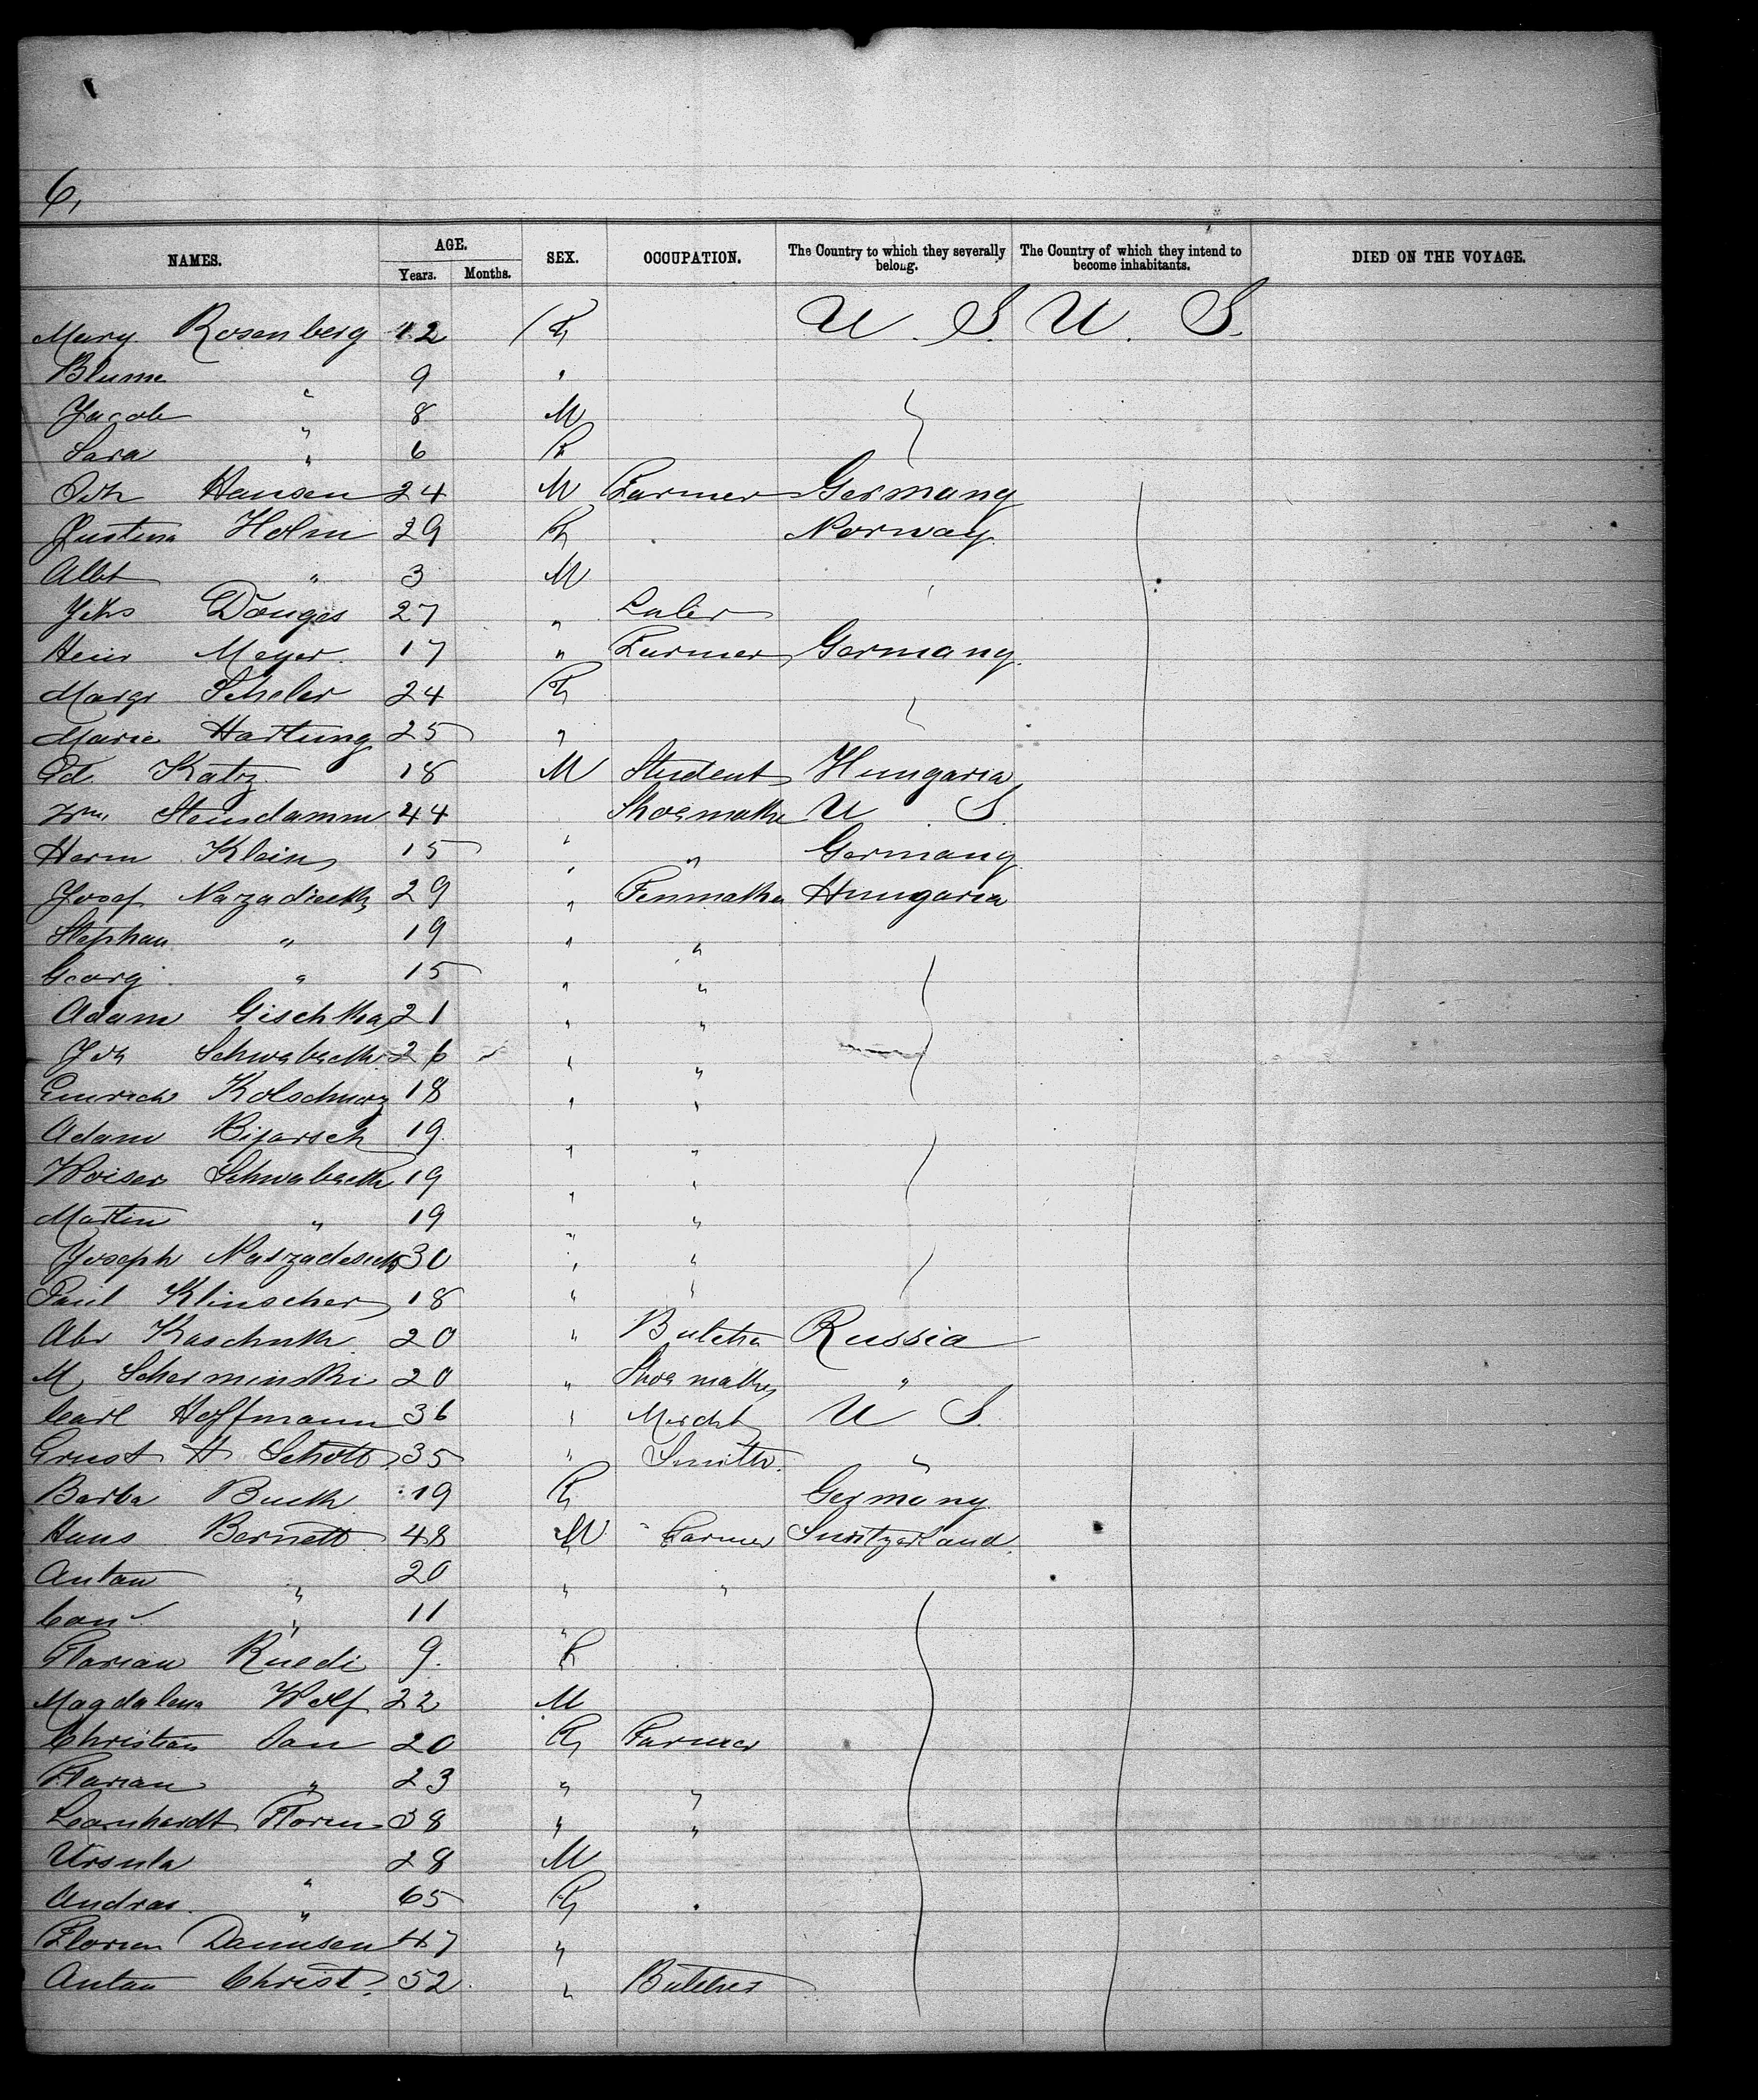 6,
NAMES. AGE. SEX. OCCUPATION. The Country to which they severally belong. The Country of which they intend to become inhabitants. DIED ON THE VOYAGE.
Years. Months.
Mary Rosenberg 42 F U. S. U. S.
Blume " 9 "
Jacob " 8 M
Sara " 6 F
Joh Hansen 24 M Farmer Germany
Justina Holm 29 F Norway
Albt " 3 M
Johs Donges 27 " Labr
Heinr Meyer 17 " Farmer Germany
Margr Scheler 24 F
Marie Hartung 25 "
Ed. Katz 18 M Student Hungaria
Wm. Steindamm 44 " Shoemaker U. S.
Herm Klein 15 " " Germany
Josef 29 " Hungaria
Stephan " 19 " "
Georg " 15 " "
Adam Gischka 21 " "
Joh 26 " "
Emrich 18 " "
Adam 19 " "
19 " "
Martin " 19 " "
Joseph 30 " "
Paul Klinscher 18 " "
Abr 20 " Butcher Russia
M. Scherminski 20 " Shoemaker "
Carl Hoffmann 36 " Mercht U S.
Ernst H Schott 35 " Smith "
Barba Buck 19 F Germany
Hans Bernett 48 M Farmer Switzerland
Antau " 20 " "
" 11 "
Florian Ruedi 9 F
Magdalena Wolf 22 M
Christian Jan 20 F Farmer
Florian " 23 " "
Leonhardt Floren 38 " "
Ursula " 28 M
Andras " 65 F
Florian 47 "
Antau Christ 52 " Butcher